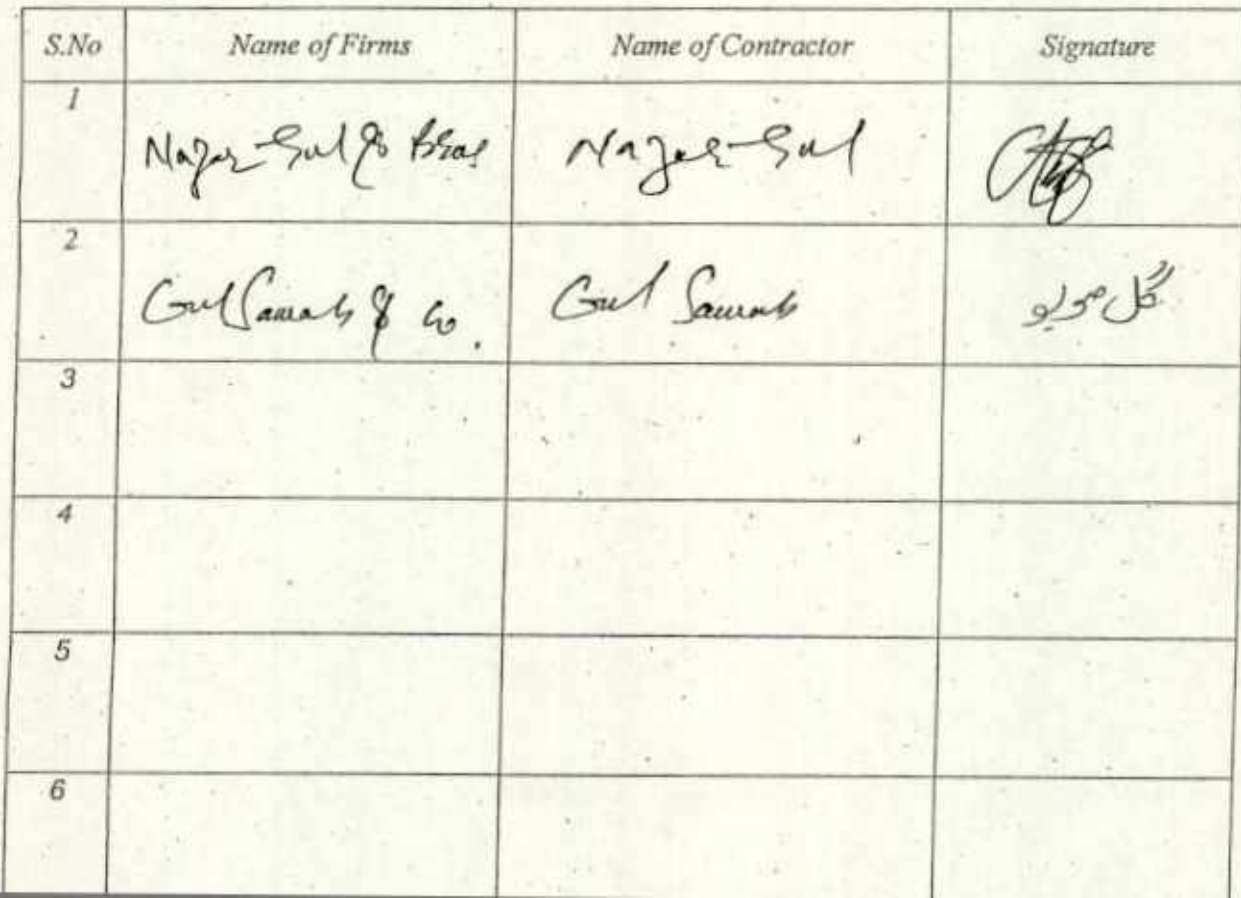 S.No Name of Firms Name of Contractor Signature
1 Nazar Gul & Bros Nazar Gul
2 Gul Saurab & Co. Gul Saurab گل
3
4
5
6